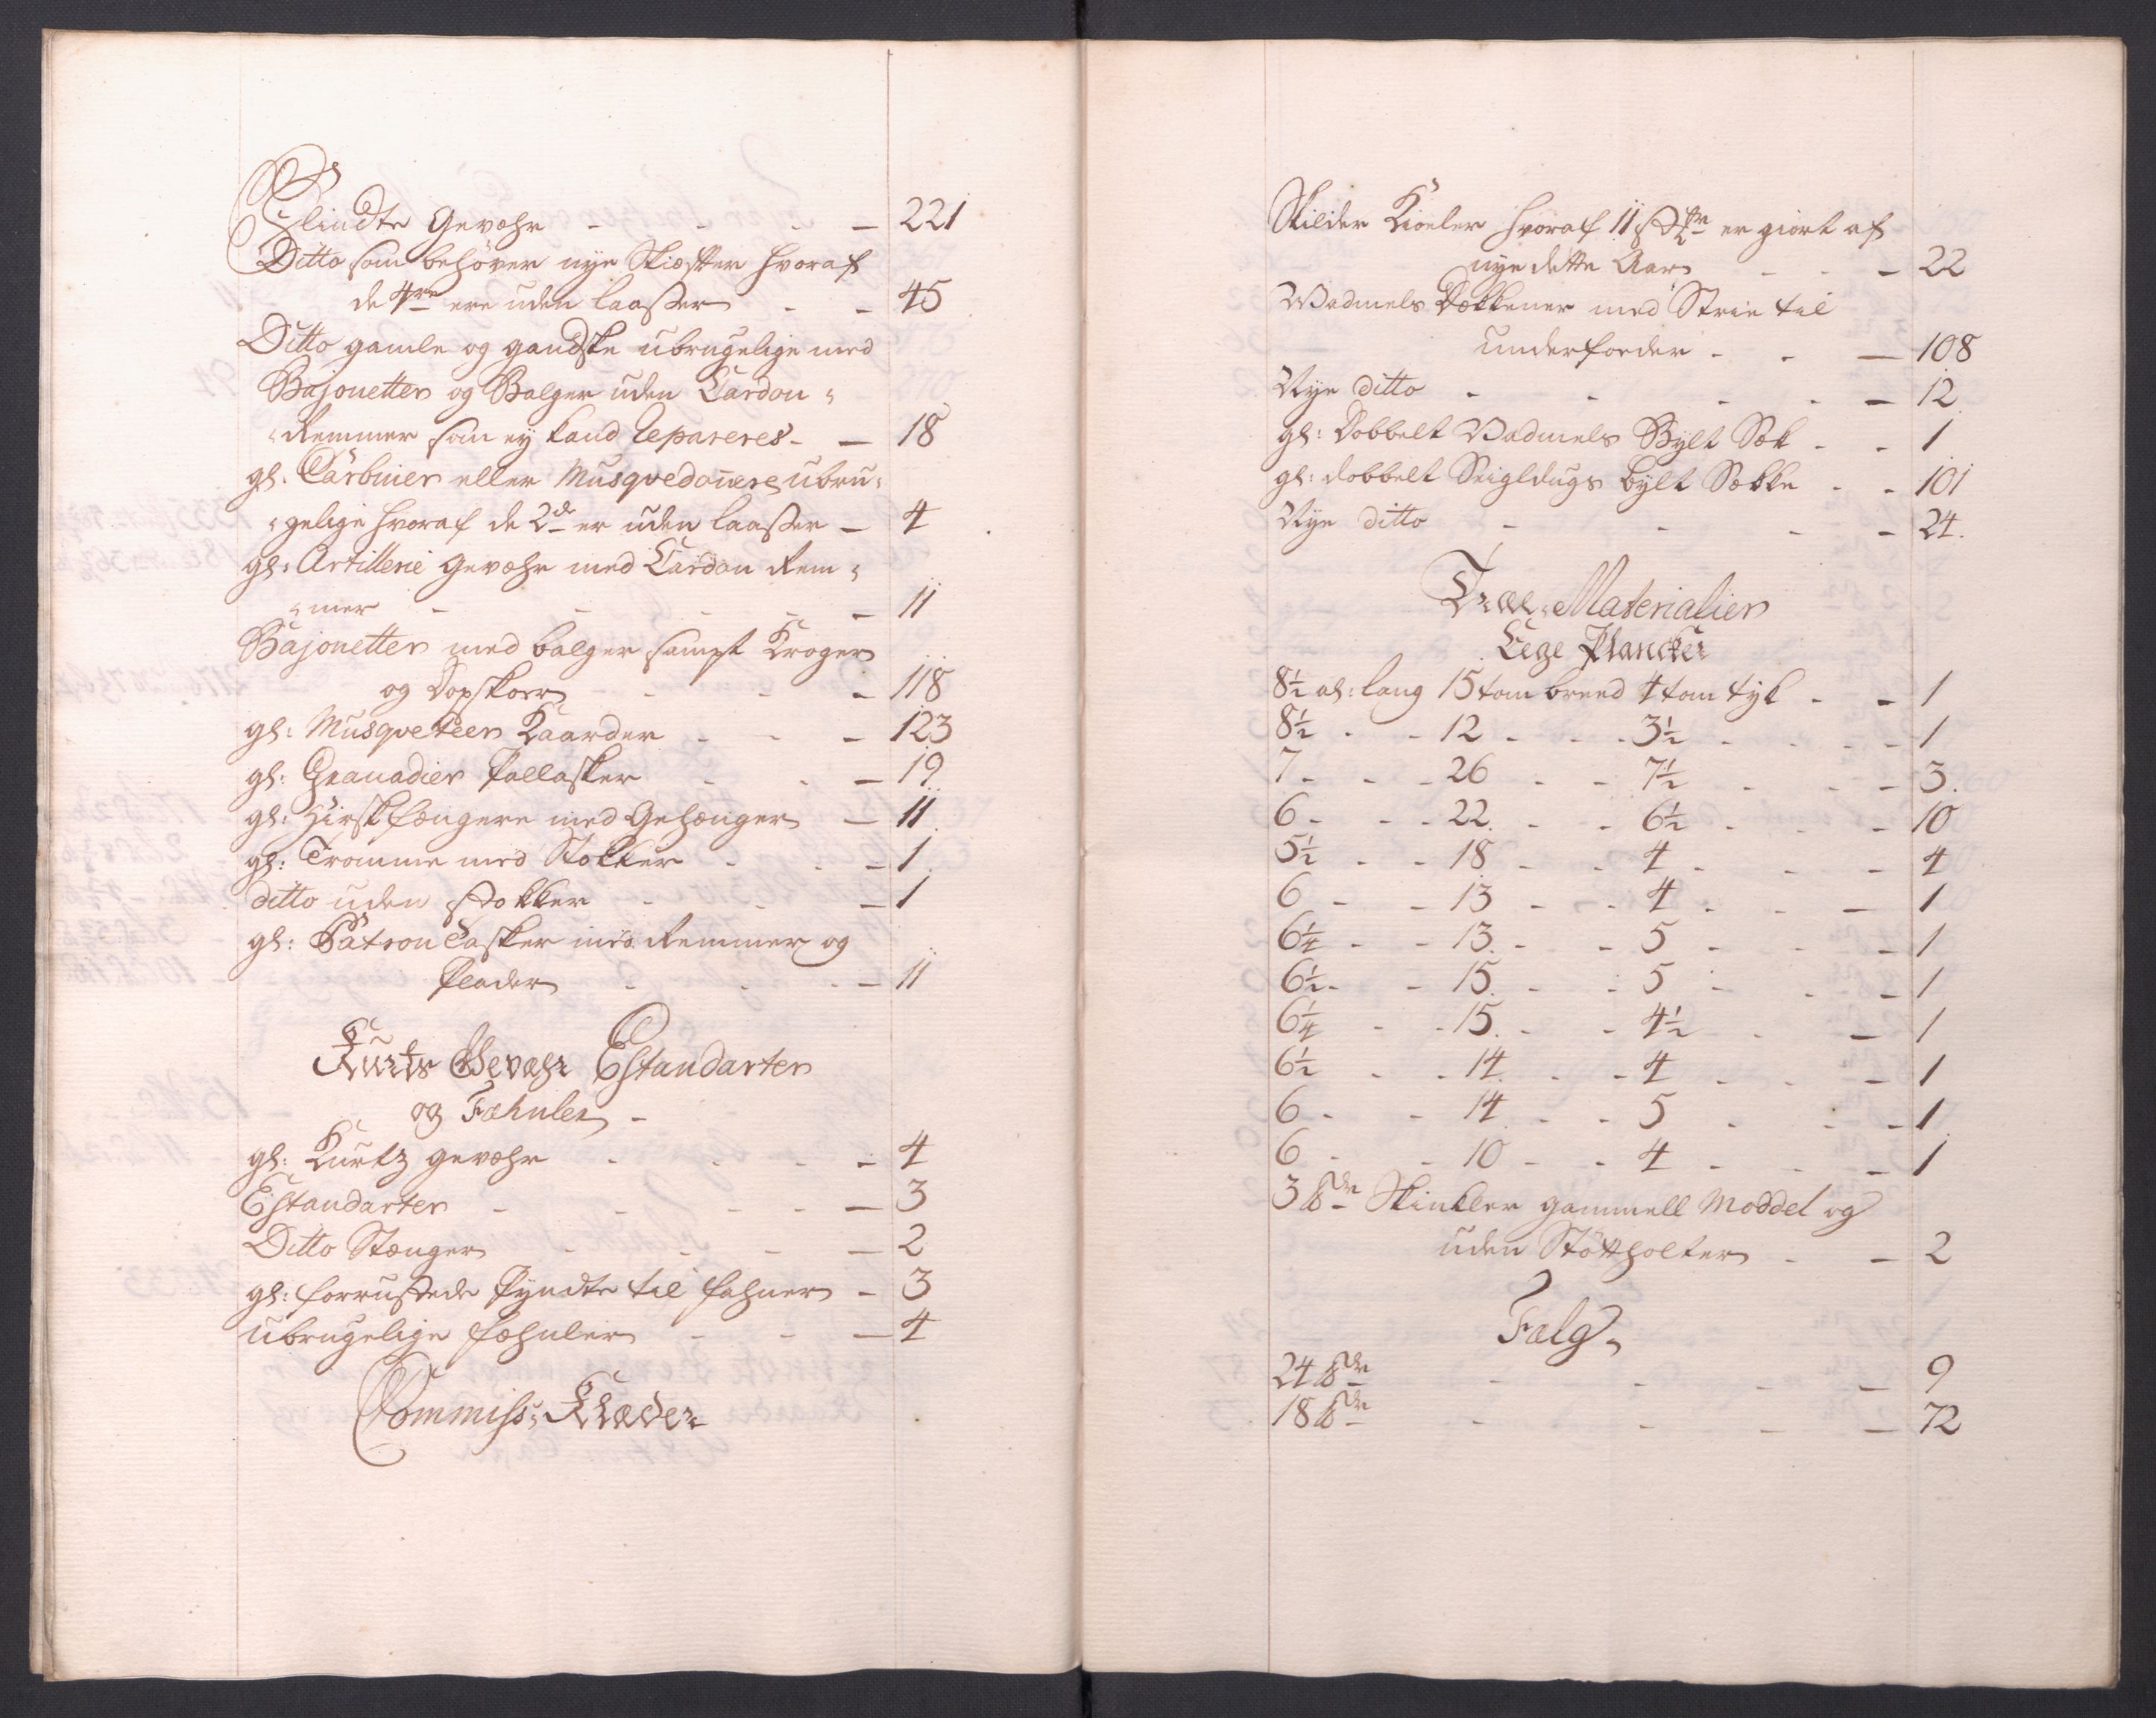 Flindte Gevæhr - - - - 221
Ditto som behøver nye Skiæffter hvoraf
de 4re ere uden laasser - - 45
Ditto gamle og gandske ubrugelige med
Bajonetter og Balger uden Cardon-
-Remmer som ej kand Repareres - - 18
gl: Carbiner eller Musqvedonere, ubru-
-gelige hvoraf de 2de er uden laasser - 4
gl: Artillerie Gevæhr med Cardon Rem-
-mer - - - - - 11
Bajonetter med balger sampt Kroger
og Dopskoer - - - 118
gl: Musqveteer Kaarder - - - 123
gl: Granadier Pallasker - - - 19
gl: Hirschfængere med Gehænger - 11
gl: Tromme med Stokker - - - 1
ditto uden stokker - - - 1
gl: Patron Tasker med Remmer og
Plader - - - - 11
Kurts Gevæhr Estandarter
og Fæhnler -
gl: Kurtz gevæhr - - - - 4
Estandarter - - - - - 3
Ditto Stænger - - - - 2
gl: forrustede Pyndte til fahner - 3
ubrugelige fæhnler - - - 4
Commiss: Klæder
Skilder Kioler hvoraf 11 stkr er giort af
nye dette Aar - - - 22
Vadmels Dækkener med Strie til
underfoeder - - - 108
Nye ditto - - - - - 12
gl: Dobbelt Vadmels Bylt Sæk - - 1
gl: dobbelt Seigldugs bylt Sække - - 101
Nye ditto - - - - 24.
Træe-Materialier
Eege Plancker
8½ al: lang 15 tom breed 4 tom tyk - - 1
8½ - - 12 - - - 3½ - - - - 1
7 - - - 26 - - 7½ - - - 3.
6 - - - 22. - - 6½ - - - 10
5½ - - 18 - - 4 - - - 4
6 - - 13 - - 4 - - - 1
6¼ - - 13. - - 5 - - - 1
6½ - - 15. - - 5 - - - 1
6¼ - - 15. - - 4½ - - 1
6½ - - 14. - - 4 - - - 1
6 - - 14 - - 5 - - - 1
6 - - 10 - - 4 - - - 1
3 ℔de Skinkler gammell Moddel og
uden Støttholter - - 2
Fælg
24 ℔de - - - - 9
18 ℔de - - - - 72